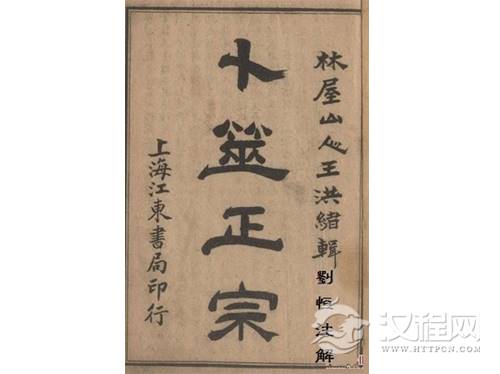 林屋山人王洪緒輯
劉恒注解
卜筮正宗
上海江東書局印行
汉程网
HTTPCN.COM